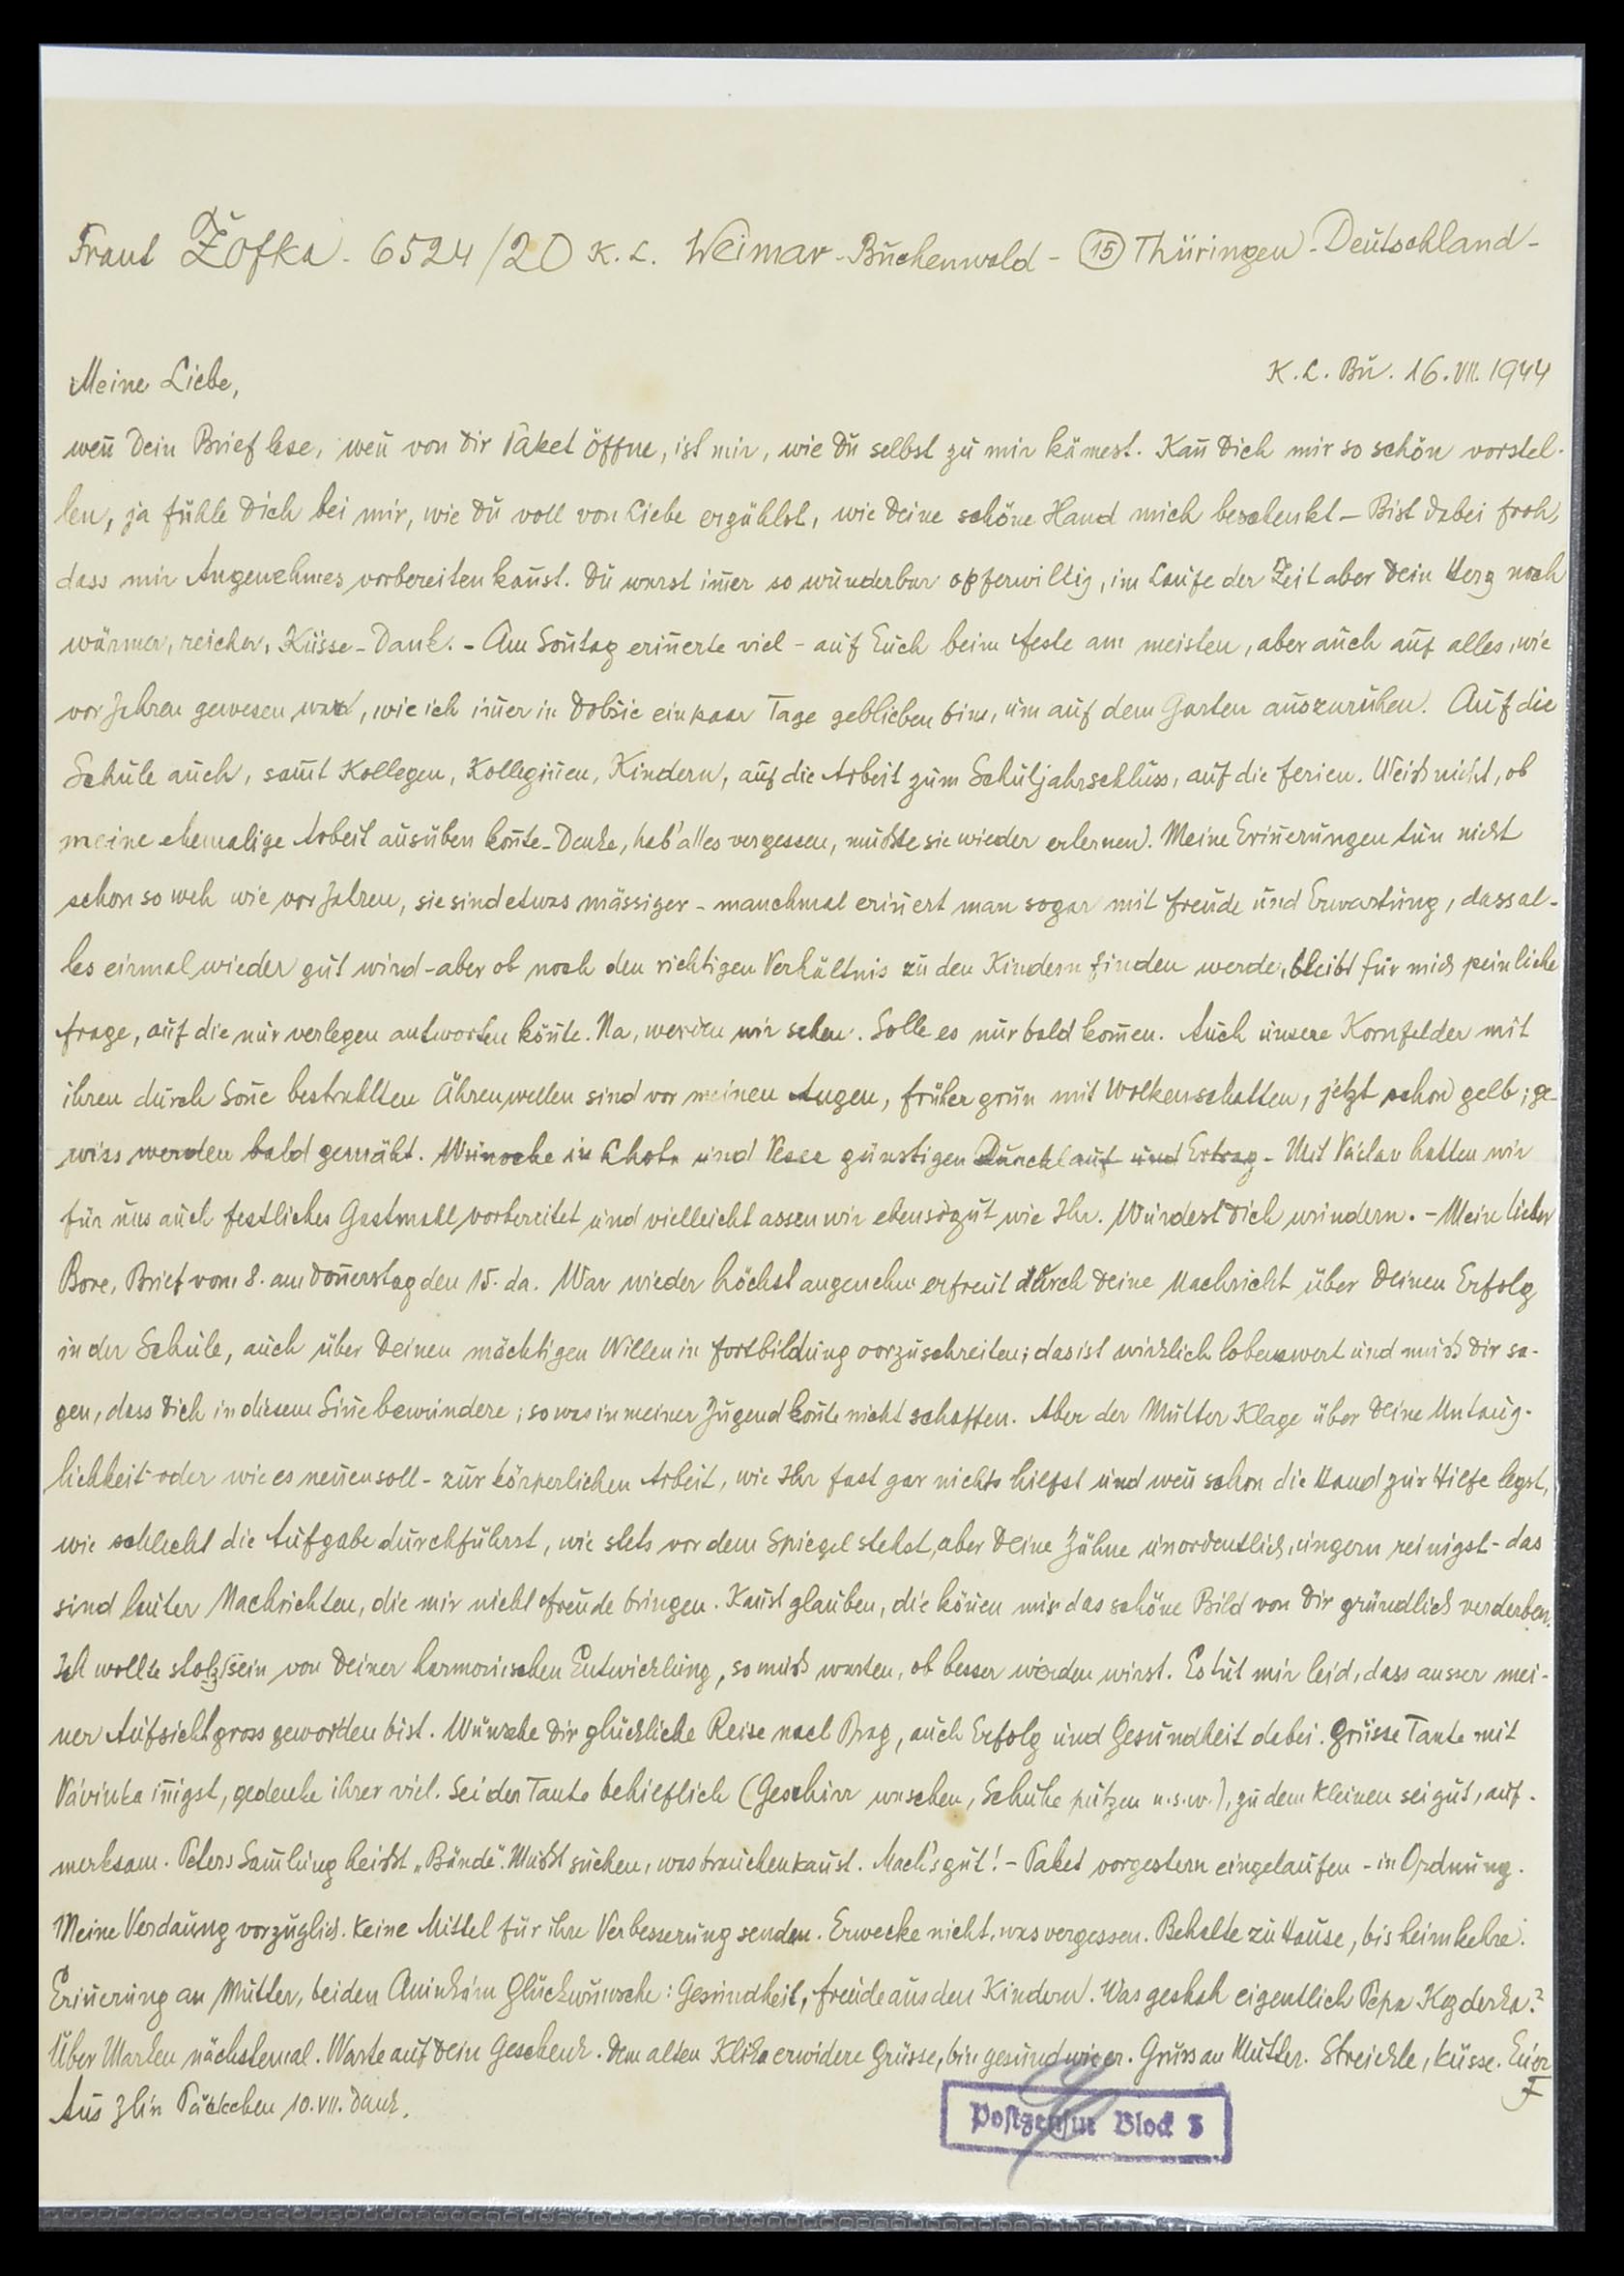 Frant Žofka - 6524/20 K.L. Weimar-Buchenwald - (15) Thüringen - Deutschland -
K.L. Bu. 16. VII. 1944
Meine Liebe,
weñ Dein Brief lese, weñ von Dir Paket öffne, ist mir, wie Du selbst zu mir kämest. Kañ Dich mir so schön vorstel-
len, ja fühle Dich bei mir, wie Du voll von Liebe erzählst, wie Deine schöne Hand mich beschenkt – Bist dabei froh,
dass mir Angenehmes vorbereiten kañst. Du warst im̄er so wunderbar opferwillig, im Laufe der Zeit aber Dein Herz noch
wärmer, reicher, Küsse - Dank. - Am Soñtag eriñerte viel - auf Euch beim Feste am meisten, aber auch auf alles, wie
vor Jahren gewesen war, wie ich im̄er in Dobsic ein paar Tage geblieben bin, um auf dem Garten auszuruhen. Auf die
Schule auch, samt Kollegen, Kollegiñen, Kindern, auf die Arbeit zum Schuljahrschluss, auf die Ferien. Weiß nicht, ob
meine ehemalige Arbeit ausüben köñte - Denke, hab' alles vergessen, müßte sie wieder erlernen. Meine Eriñerungen tun nicht
schon so weh wie vor Jahren, sie sind etwas mässiger - manchmal eriñert man sogar mit Freude und Erwartung, dass al-
les einmal wieder gut wird - aber ob noch den richtigen Verhältnis zu den Kindern finden werde, bleibt für mich peinliche
Frage, auf die nur verlegen antworten köñte. Na, werden wir sehen. Solle es nur bald kom̄en. Auch unsere Kornfelder mit
ihren durch Soñe bestrahlten Ährenwellen sind vor meinen Augen, früher grün mit Wolkenschatten, jetzt schon gelb; ge-
wiss werden bald gemäht. Wünsche in Lhota und günstigen Durchlauf und Ertrag - Mit Václav hatten wir
für uns auch festliches Gastmahl vorbereitet und vielleicht assen wir ebensogut wie Ihr. Würdest Dich wundern. - Mein lieber
Bore, Brief vom 8. am Doñerstag den 15. da. War wieder höchst angenehm erfreut durch Deine Nachricht über Deinen Erfolg
in der Schule, auch über Deinen mächtigen Willen in Fortbildung vorzuschreiten; das ist wirklich lobenswert und muß Dir sa-
gen, dass Dich in diesem Siñe bewundere; so was in meiner Jugend koñte nicht schaffen. Aber der Mutter Klage über Deine Untaug-
lichkeit - oder wie es neñen soll - zur körperlichen Arbeit, wie Ihr fast gar nichts hilfst und weñ schon die Hand zur Hilfe legst,
wie schlecht die Aufgabe durchführst, wie stets vor dem Spiegel stehst, aber Deine Zähne unordentlich, ungern reinigst - das
sind lauter Nachrichten, die mir nicht Freude bringen. Kañst glauben, die köñen mir das schöne Bild von Dir gründlich verderben.
Ich wollte stolz sein von Deiner harmonischen Entwicklung, so muß warten, ob besser werden wirst. Es tut mir leid, dass ausser mei-
ner Aufsicht gross geworden bist. Wünsche Dir glückliche Reise nach Prag, auch Erfolg und Gesundheit dabei. Grüsse Tante mit
Vávinka iñigst, gedenke ihrer viel. Sei der Tante behilflich (Geschirr waschen, Schuhe putzen u.s.w.), zu dem Kleinen sei gut, auf-
merksam. Peters Sam̄lung heißt „Bände". Mußt suchen, was brauchen kañst. Mach's gut! - Paket vorgestern eingelaufen - in Ordnung.
Meine Verdauung vorzüglich. Keine Mittel für ihre Verbesserung senden. Erwecke nicht, was vergessen. Behalte zu Hause, bis heimkehre.
Eriñerung an Mutter, beiden Glückwünsche: Gesundheit, Freude aus den Kindern. Was geschah eigentlich Pepa Kozderka?
Über Marken nächstemal. Warte auf Dein Geschenk. Dem alten Klika erwidere Grüsse, bin gesund wie er. Gruss an Mutter. Streichle, küsse. Euer
F
Aus Zlín Päckchen 10. VII. Dank.
Postzensur Block 3